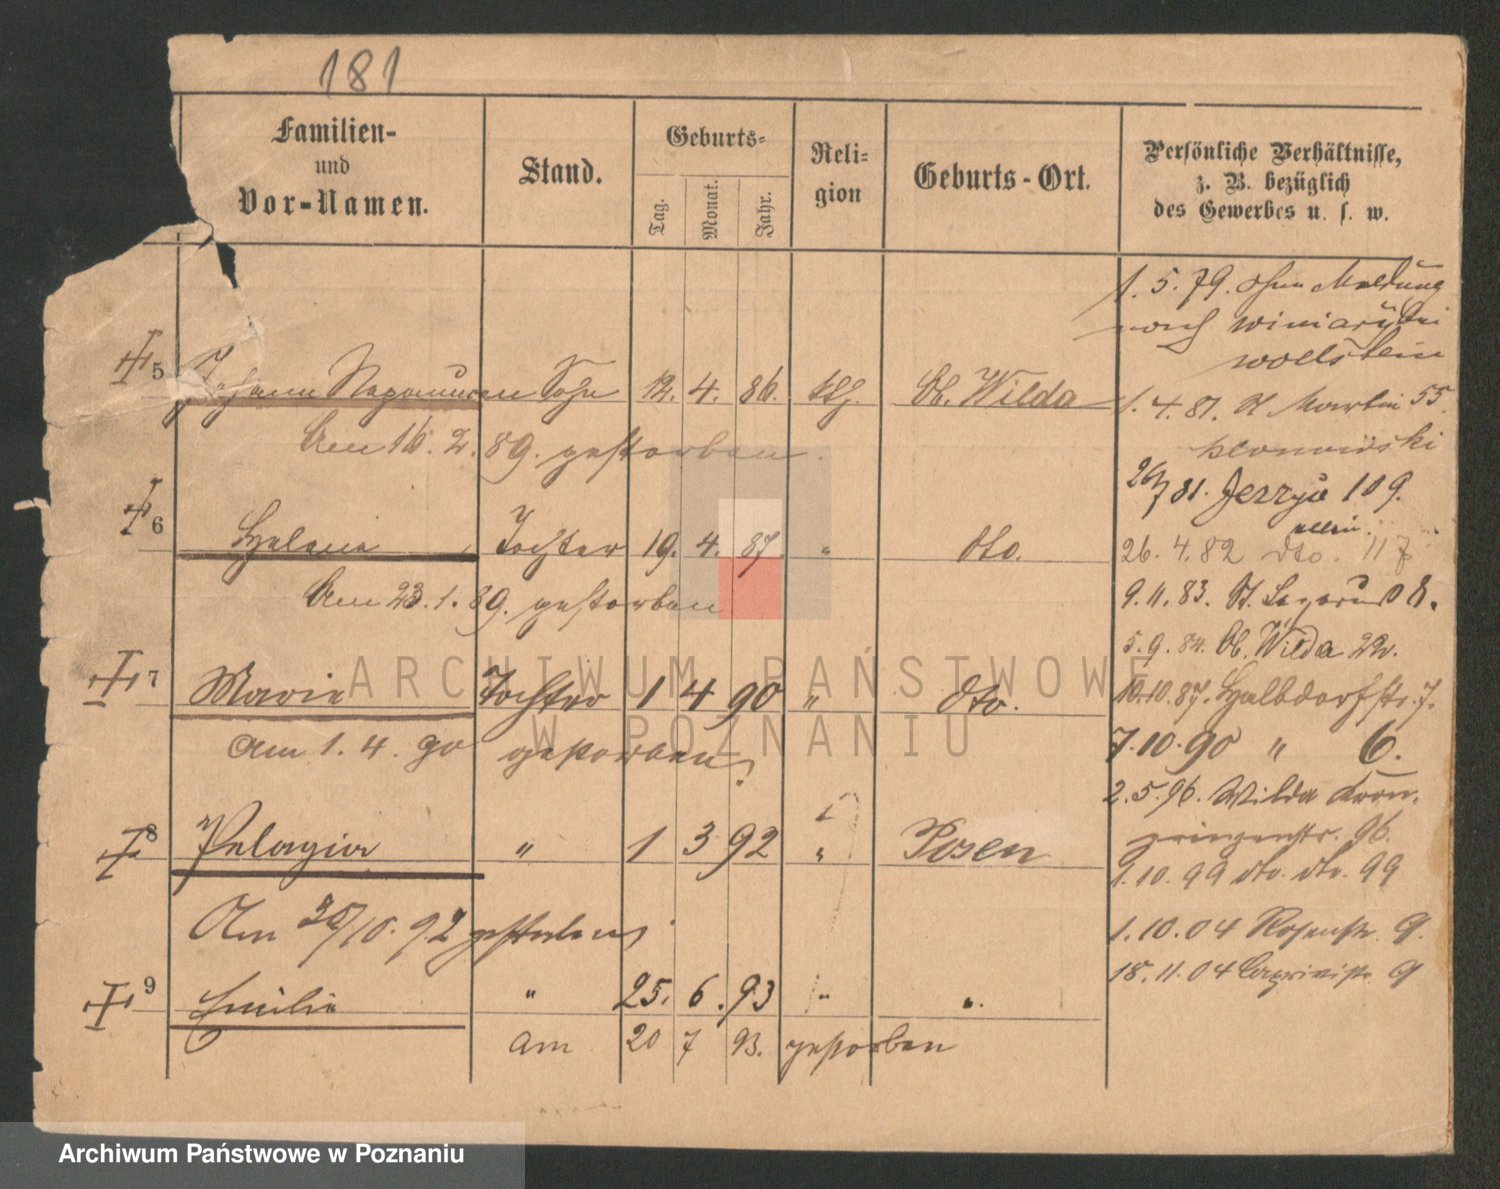 181
Familien-
und
Vor-Namen.
Stand.
Geburts-
Tag.
Monat.
Jahr.
Reli-
gion
Geburts-Ort.
Persönliche Verhältnisse,
z. B. bezüglich
des Gewerbes u. s. w.
1. 5. 79. ohne Meldung
nach
Wollstein
5 Johann Sohn 12. 4. 86. kth. Ob. Wilda
1. 4. 81. St Martin 55.
Am 16. 2. 89. gestorben.
26/7 81. Jerzyce 109.
allein.
6 Helene Tochter 19. 4. 87. " dto.
26. 4. 82 dto. 117
Am 23. 1. 89. gestorben
9. 11. 83. St. Lazarus 8.
5. 9. 84. Ob. Wilda 22.
7 Marie Tochter 1 4 90 " dto.
10. 10. 87. Halbdorfstr. 7.
am 1. 4. 90 gestorben.
7. 10. 90 " 6.
2. 5. 96. Wilda Kron-
prinzenstr. 96.
8 Pelagia " 1 3 92 " Posen
1. 10. 99 dto. dto. 99
Am 20/10. 92 gestorben
1. 10. 04 Rosenstr. 9.
18. 11. 04 Caprivistr. 9
9 Emilie " 25. 6. 93 " "
am 20 7 93. gestorben
ARCHIWUM PAŃSTWOWE
W POZNANIU
Archiwum Państwowe w Poznaniu